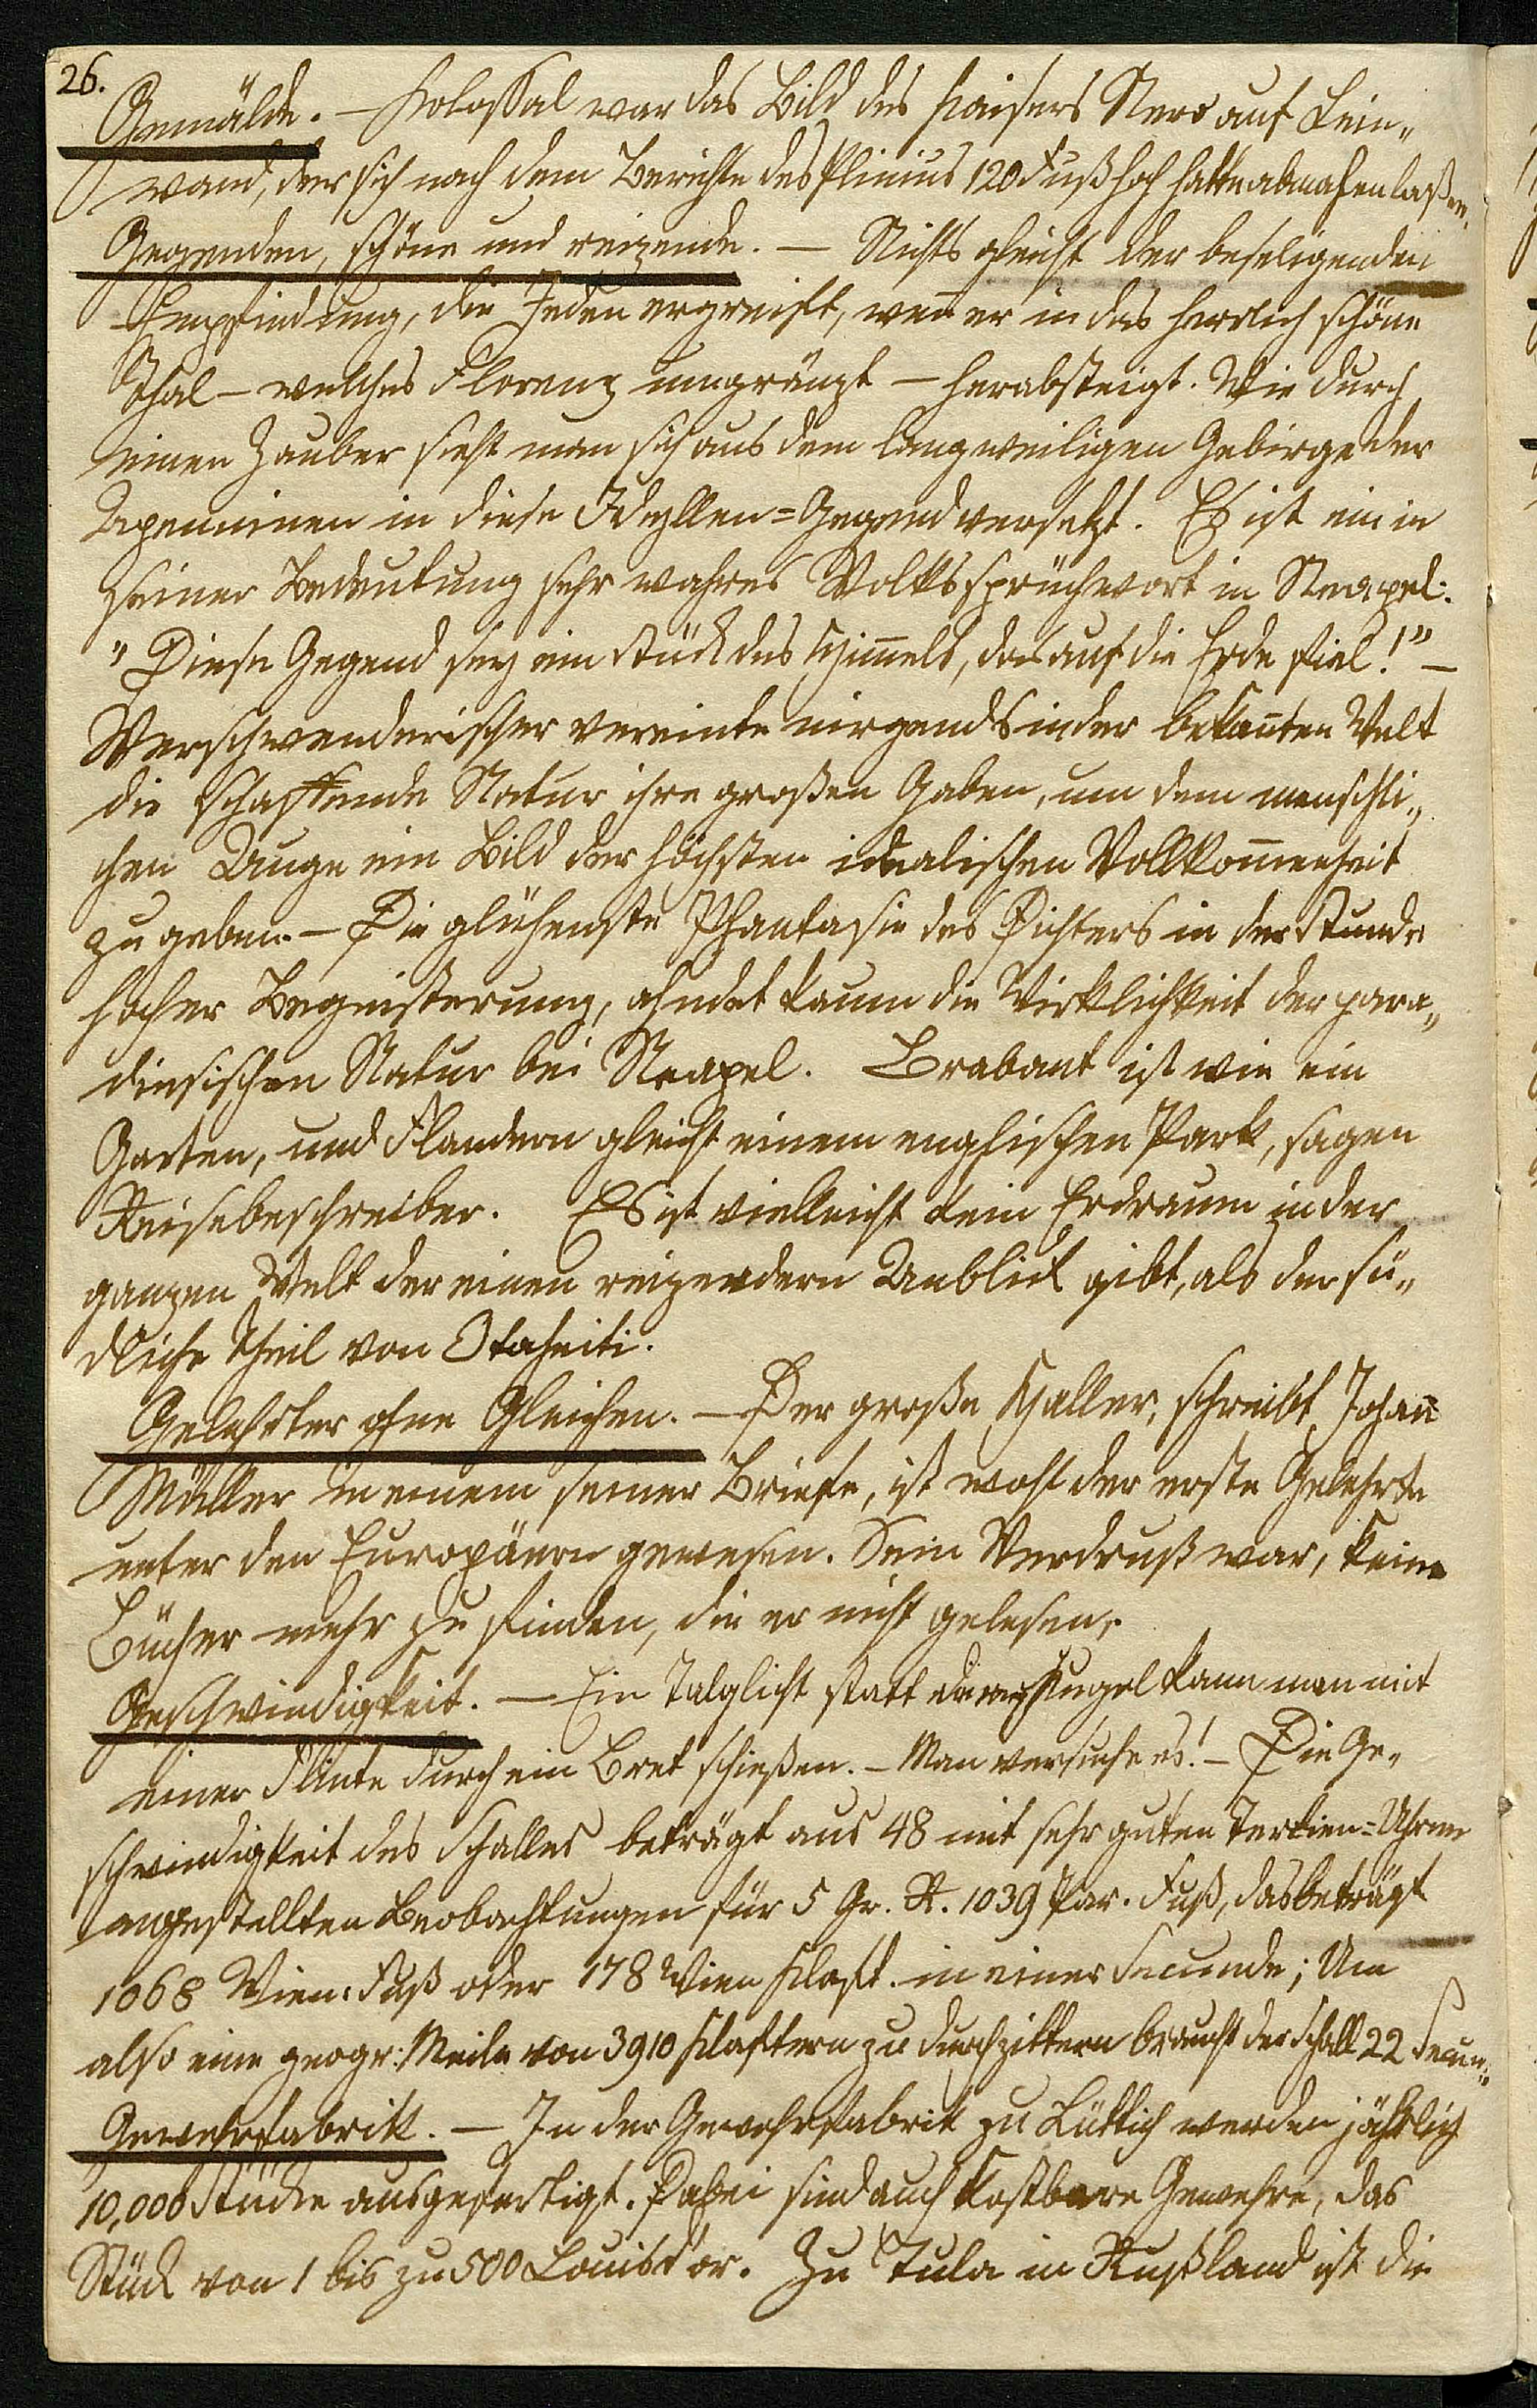 26.
Gemälde. — Kolossal war das Bild des Kaisers Nero auf Lein„
wand, der sich nach dem Berichte des Plinius 120 Fuß hoch hatte abmahlen laßen.
Gegenden, schöne und reizende. — Nichts gleicht der beseligenden
Empfindung, die Jeden ergreift, weñ er in das herrlich schöne
Thal — welches Florenz umgränzt — herabsteigt. Wie durch
einen Zauber sieht man sich aus dem langweiligen Gebirge der
Apenninen in diese Idyllen=Gegend versetzt. Es ist ein in
seiner Bedeutung sehr wahres Volkssprüchwort in Neapel:
"Diese Gegend sey ein Stück des Him̄els, das auf die Erde fiel!" —
Verschwenderischer vereinte nirgends in der bekañten Welt
die schaffende Natur ihre großen Gaben, um dem menschli„
chen Auge ein Bild der höchsten idealischen Vollkom̄enheit
zu geben. — Die glühenste Phantasie des Dichters in der Stunde
hoher Begeisterung, ahndet kaum die Wirklichkeit der para„
diesischen Natur bei Neapel. Brabant ist wie ein
Garten, und Flandern gleicht einem englischen Park, sagen
Reisebeschreiber. Es ist vielleicht kein Erdraum in der
ganzen Welt der einen reizendern Anblick gibt, als der sü„
dliche Theil von Otaheiti.
Gelehrter ohne Gleichen. — Der große Haller, schreibt Johañ
Müller in einem seiner Briefe, ist wohl der erste Gelehrte
unter den Europäern gewesen. Sein Verdruß war, keine
Bücher mehr zu finden, die er nicht gelesen.
Geschwindigkeit. — Ein Talglicht statt einer Kugel kann man mit
einer Flinte durch ein Bret schießen. — Man versuche es! — Die Ge„
schwindigkeit des Schalles beträgt aus 48 mit sehr guten Terzien=Uhren
angestellten Beobachtungen für 5 Gr. R. 1039 Par. Fuß, das beträgt
1068 Wien: Fuß oder 178 Wien Klaft. in einer Secunde; Um
also eine geogr: Meile von 3910 Klaftern zu durchzittern braucht der Schall 22 Secun„
Gewehrfabrik. — In der Gewehrfabrik zu Lüttich werden jährlich
10,000 Stücke ausgefertigt. Dabei sind auch kostbare Gewehre, das
Stück von 1 bis zu 500 Louisd'or. Zu Tula in Rußland ist die